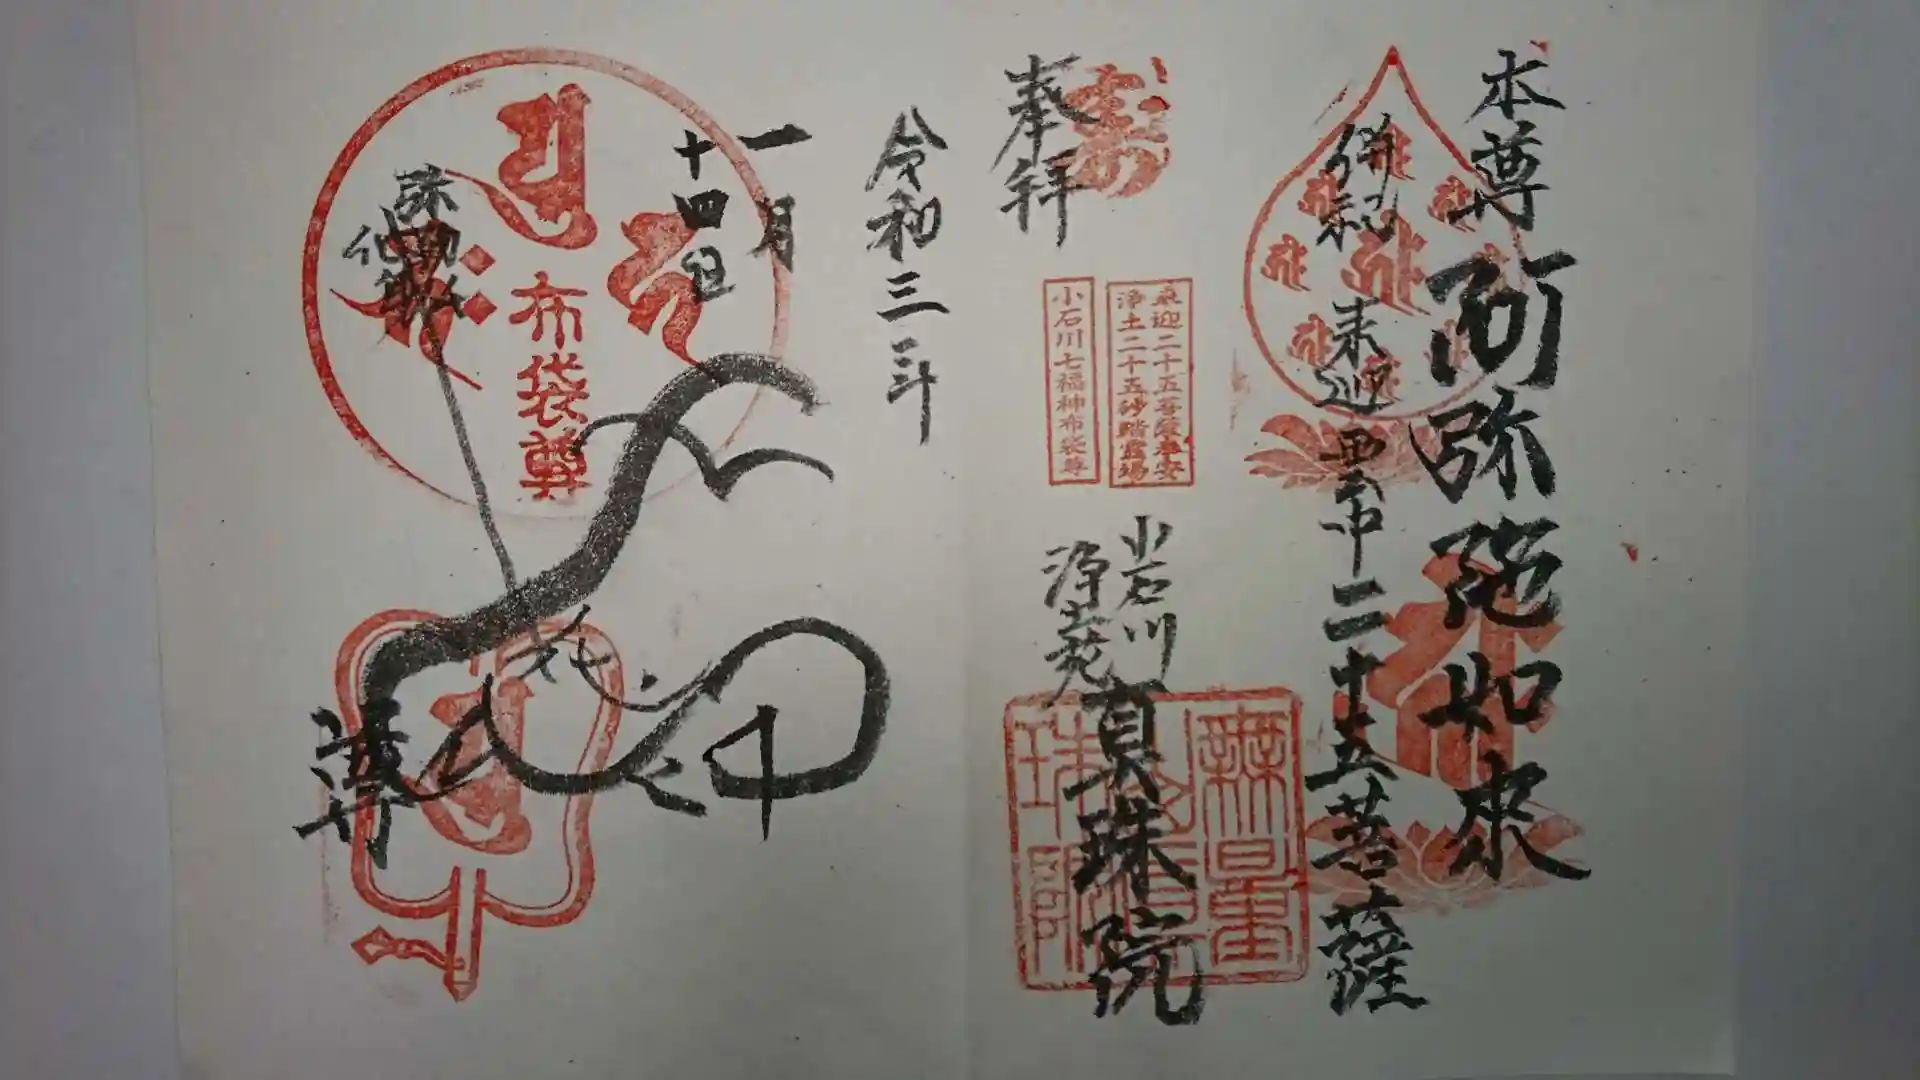 本尊
阿弥陀如来
併祀
来迎
二十五菩薩
奉拝
来迎二十五菩薩奉安
浄土二十五砂踏霊場
小石川七福神布袋尊
小石川
浄苑
真珠院
無量
令和三年
一月
十四日
弥勒
化身
布袋尊
尊